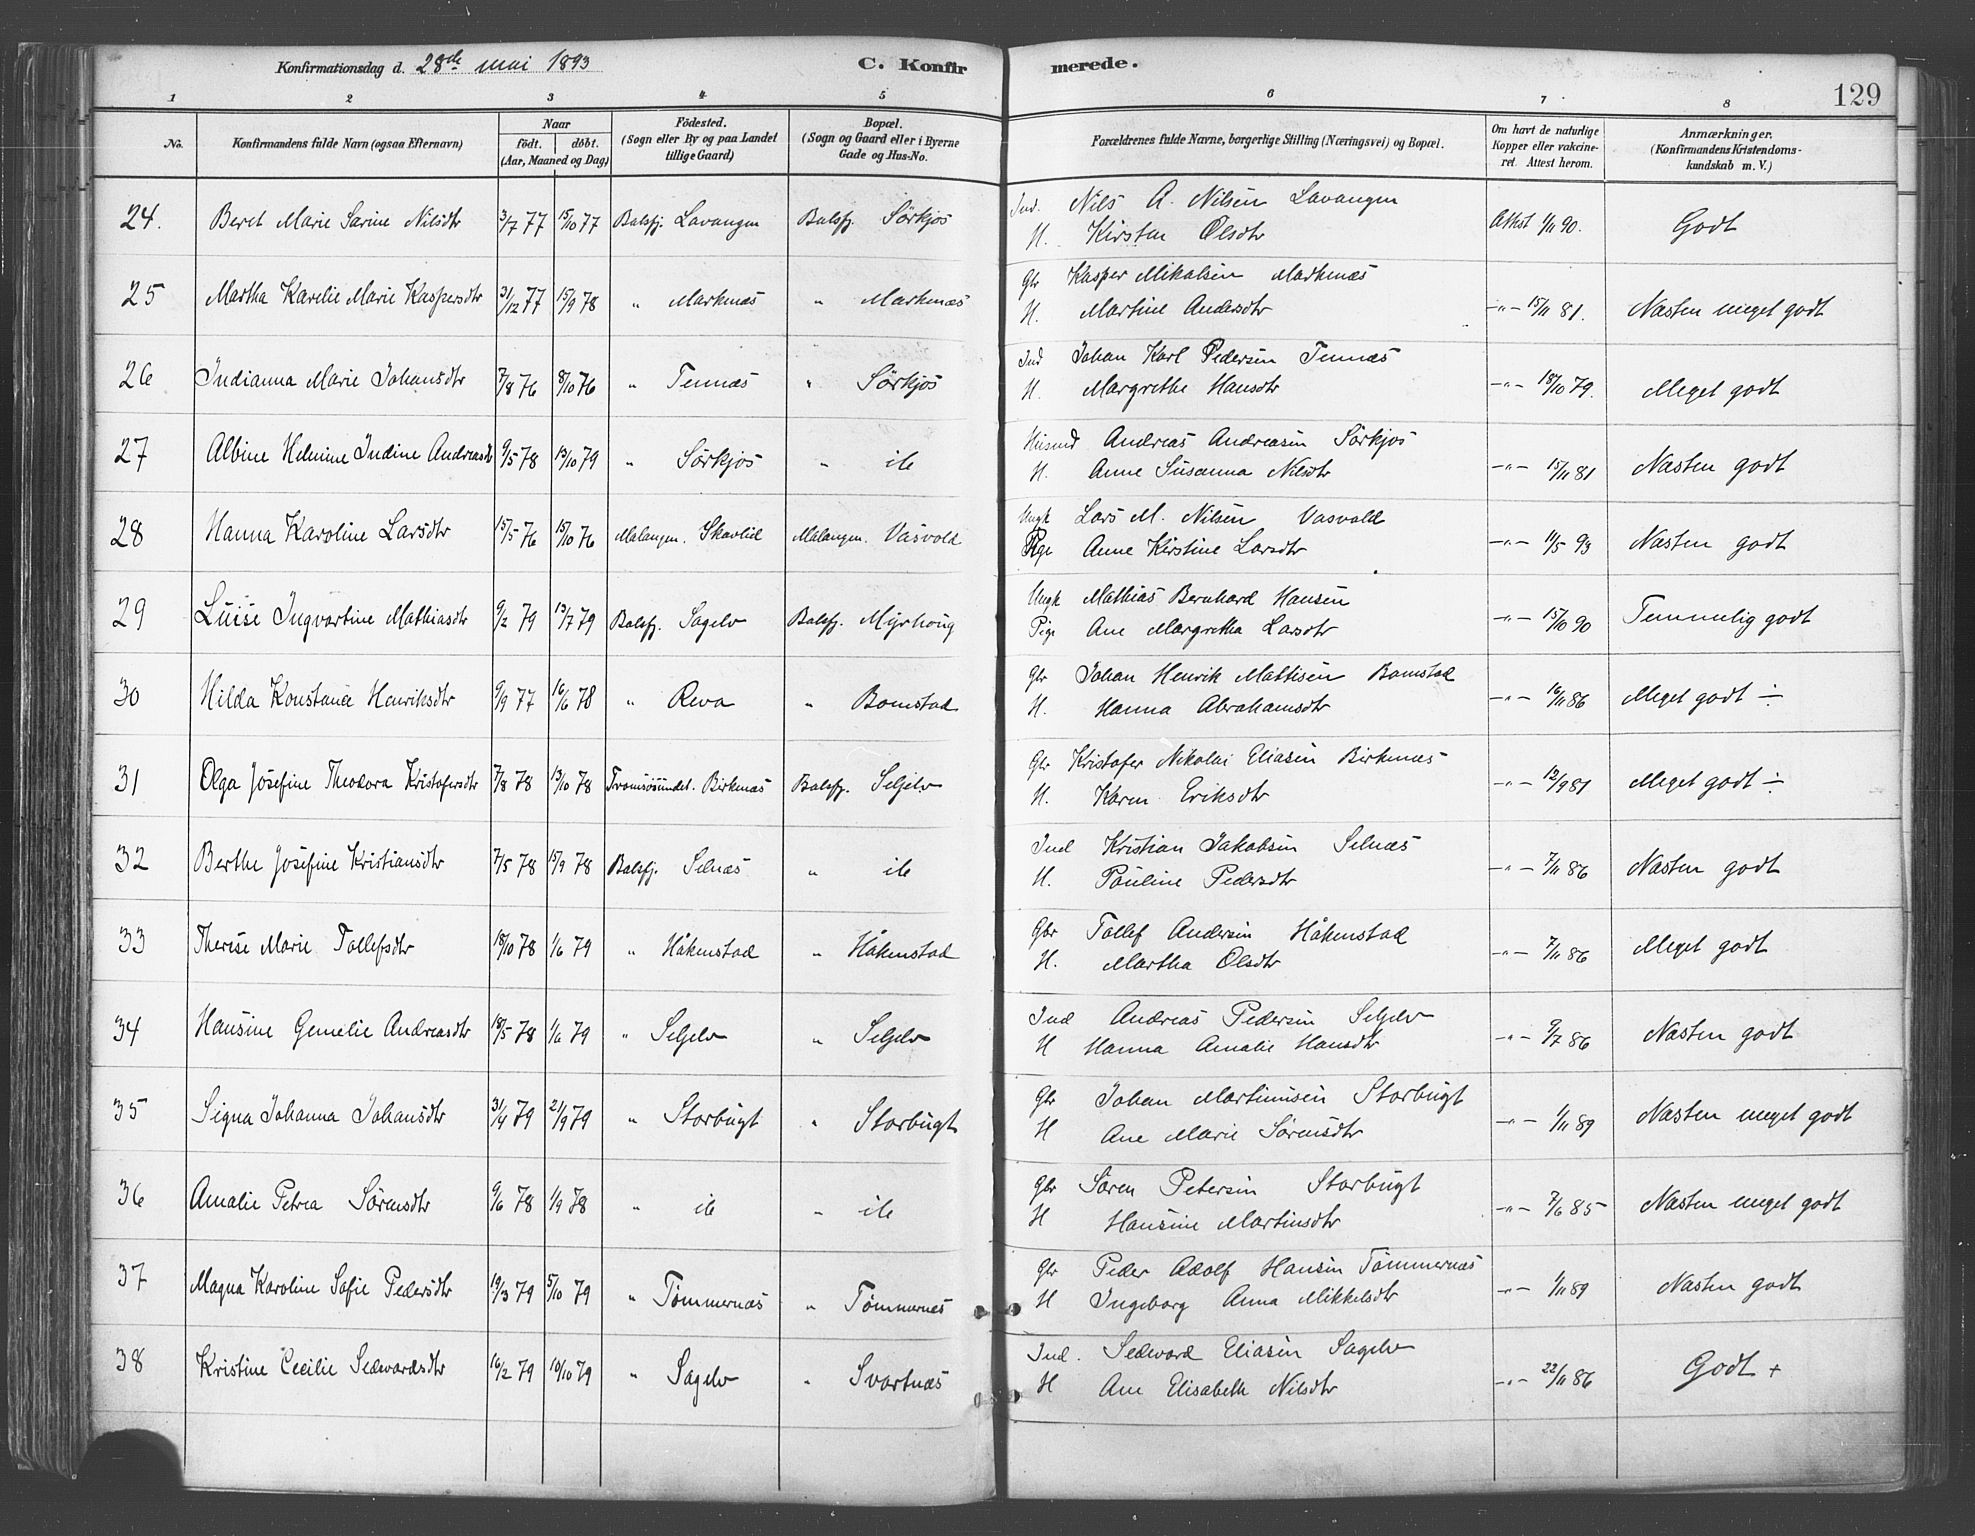 Konfirmationsdag d. 28de mai 1893 C. Konfirmerede. 129
1 2 3 4 5 6 7 8
No. Konfirmandens fulde Navn (ogsaa Efternavn) Naar født. døbt. (Aar, Maaned og Dag) Fødested. (Sogn eller By og paa Landet tillige Gaard) Bopæl. (Sogn og Gaard eller i Byerne Gade og Hus-No. Forældrenes fulde Navne, borgerlige Stilling (Næringsvei) og Bopæl. Om havt de naturlige Kopper eller vakcineret. Attest herom. Anmærkninger. (Konfirmandens Kristendomskundskab m. V.)
24. Beret Marie Sarine Nilsdtr 3/7 77 15/10 77 Balsfj. Lavangen Balsfj. Sørkjos Ind. Nils A. Nilsen Lavangen Attest 1/11 90. Godt
H. Kirsten Olsdtr
25 Martha Karelie Marie Kaspersdtr 31/12 77 15/9 78 " Markenæs " Markenæs Gbr Kasper Mikalsen Markenæs -"- 15/11 81. Næsten meget godt
H. Martine Andersdtr
26 Indianna Marie Johansdtr 7/8 76 8/10 76 " Tennæs " Sørkjos Ind Johan Karl Pedersen Tennæs -"- 18/10 79. Meget godt
H. Margrethe Hansdtr
27 Albine Helmine Indine Andreasdtr 9/5 78 13/10 79 " Sørkjos " ile Husmd Andreas Andreasen Sørkjos -"- 15/11 81 Næsten godt
H. Anne Susanna Nilsdtr
28 Hanna Karoline Larsdtr 15/5 76 15/10 76 Malangen. Skavlid Malangen. Vasvold Ungk Lars M. Nilsen Vasvold -"- 11/5 93 Næsten godt
Pige Anne Kirstine Larsdtr
29 Luise Ingvartine Mathiasdtr 9/2 79 13/7 79 Balsfj. Sagelv Balsfj. Myrhoug Ungk Mathias Bernhard Hansen -"- 15/10 90 Temmelig godt
Pige Ane Margretha Larsdtr
30 Hilda Konstance Henriksdtr 9/9 77 16/6 78 " Reva " Bomstad Gbr Johan Henrik Mattisen Bomstad -"- 16/11 86 Meget godt ÷
H. Hanna Abrahamsdtr
31 Olga Josefine Theodora Kristofersdtr 7/8 78 13/10 78 Tromsøsundet. Birkenæs Balsfj. Seljelv Gbr Kristofer Nikolai Eliasen Birkenæs -"- 12/9 81 Meget godt ÷
H. Karen Eriksdtr
32 Berthe Josefine Kristiansdtr 7/5 78 15/9 78 Balsfj. Selnæs " ile Ind Kristian Jakobsen Selnæs -"- 7/11 86 Næsten godt
H. Pauline Pedersdtr
33 Therese Marie Tollefsdtr 18/10 78 1/6 79 " Håkenstad " Håkenstad Gbr Tollef Andersen Håkenstad -"- 7/11 86 Meget godt
H. Martha Olsdtr
34 Hansine Gemelie Andreasdtr 18/5 78 1/6 79 " Seljelv " Seljelv Ind Andreas Pedersen Seljelv -"- 9/7 86 Næsten godt
H Hanna Amalie Hansdtr
35 Signa Johanna Johansdtr 31/4 79 21/9 79 " Storbugt " Storbugt Gbr Johan Martinusen Storbugt -"- 1/11 89 Næsten meget godt
H Ane Marie Sørensdtr
36 Amalie Petrea Sørensdtr 9/6 78 1/9 78 " ile " ile Gbr Søren Petersen Storbugt -"- 7/6 85 Næsten meget godt
H Hansine Martinsdtr
37 Magna Karoline Sofie Pedersdtr 19/3 79 5/10 79 " Tømmernæs " Tømmernæs Gbr Peder Adolf Hansen Tømmernæs -"- 1/11 89 Næsten godt
H Ingeborg Anna Mikkelsdtr
38 Kristine Cecilie Sedvardsdtr 16/2 79 10/10 79 " Sagelv " Svartnæs Ind. Sedvard Eliasen Sagelv -"- 22/11 86 Godt +
H Ane Elisabeth Nilsdtr